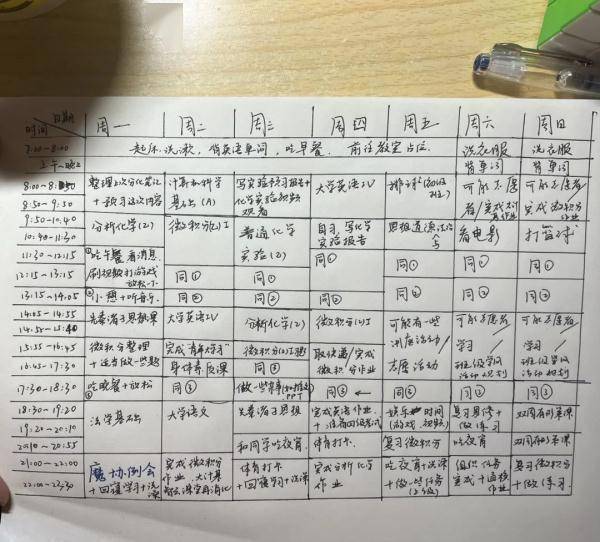 日期
时间
周一 周二 周三 周四 周五 周六 周日
7:00~8:00 起床、洗漱，背英语单词，吃早餐，前往教室占位 洗衣服 洗衣服
上午~晚上 背单词 背单词
8:00~8:50 整理上次分化笔记 计算机科学 写实验预习报告+ 大学英语IV 排球 可能志愿 可能志愿
8:50~9:50 +预习这次内容 基础(A) 化学实验视频 者/完成 者/
9:50~10:40 分析化学(2) 微积分(2)I 观看 自习，写化学 思想道德 完成微积分
10:40~11:30 普通化学 实验报告 看电影 打篮球
11:30~12:15 ①吃午餐 看消息 实验(2) 同① 同① 同①
12:15~13:15 刷视频 打游戏 同① 同① 同①
放松
13:15~14:05 ②小憩+听音乐 同② 同② 同② 同② 同② 同②
14:05~14:55 先秦诸子思想课 大学英语IV 分析化学(2) 微积分(2)I 可能有一些 可能志愿者/ 可能志愿者
15:55~16:45 微积分整理 完成"青年大学习" 微积分(2)I 取快递/完成 志愿活动 学习/ 学习/
16:45~17:30 +适当做一些题 身体素质课 微积分作业 班级学风 班级学风
17:30~18:30 ③吃晚餐+放松 同③ 做一些 PPT 同③ ← 同③ 同③
18:30~19:20 法学基础 大学语文 先秦诸子思想 完成英语作业 娱乐时间 复习思修+ 双周有形策课
19:20~20:10 (游戏、视频) 做练习
20:10~20:55 和同学吃夜宵 体育打卡 复习微积分 吃夜宵 双周有形策课
21:00~22:00 魔协例会 完成微积分 体育打卡 完成分析化学 吃夜宵+洗澡 组织任务 复习微积分
22:00~22:30 +回寝学习+洗澡 作业 +回寝学习+洗澡 作业 +做一些任务 完成+ +做练习